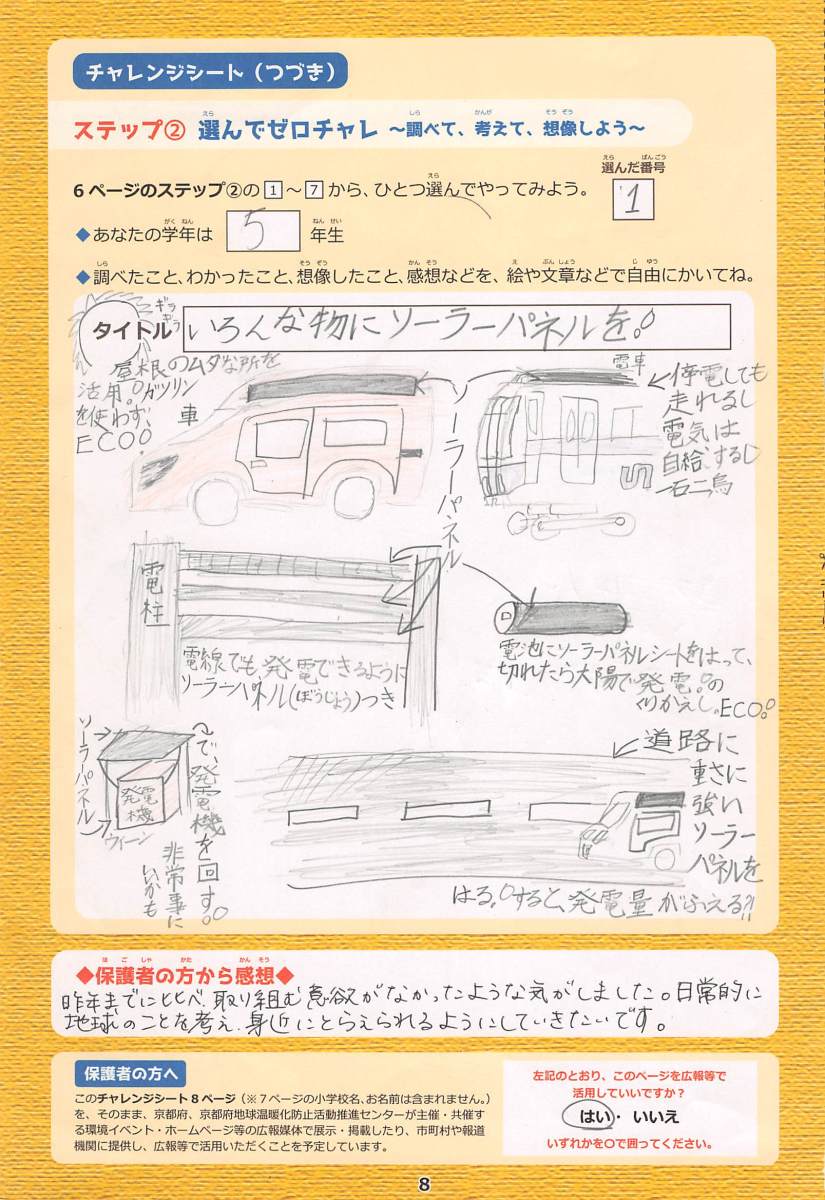 チャレンジシート（つづき）
ステップ② 選んでゼロチャレ ～調べて、考えて、想像しよう～
6ページのステップ②の1～7から、ひとつ選んでやってみよう。
選んだ番号
1
◆あなたの学年は 5 年生
◆調べたこと、わかったこと、想像したこと、感想などを、絵や文章などで自由にかいてね。
ギラギラ
タイトル いろんな物にソーラーパネルを!
屋根のムダな所を
活用!ガソリン
を使わず、
ECO!
車
ソーラーパネル
電車
停電しても
走れるし
電気は
自給するし
一石二鳥
S
電柱
電線でも、発電できるように
ソーラーパネル(ぼうじょう)つき
電池にソーラーパネルシートをはって、
切れたら太陽で発電!の
くりかえし。ECO!
ソーラーパネル
発電機
ウィーン
で、発電機を回す。
非常事に
いかも
道路に
重さに
強い
ソーラー
パネルを
はる!すると、発電量がふえる?!
◆保護者の方から感想◆
昨年までにくらべ、取り組む意欲がなかったような気がしました。日常的に
地球のことを考え、身近にとらえられるようにしていきたいです。
保護者の方へ
このチャレンジシート8ページ（※7ページの小学校名、お名前は含まれません。）
を、そのまま、京都府、京都府地球温暖化防止活動推進センターが主催・共催す
る環境イベント・ホームページ等の広報媒体で展示・掲載したり、市町村や報道
機関に提供し、広報等で活用いただくことを予定しています。
左記のとおり、このページを広報等で
活用していいですか？
はい・いいえ
いずれかを〇で囲ってください。
8